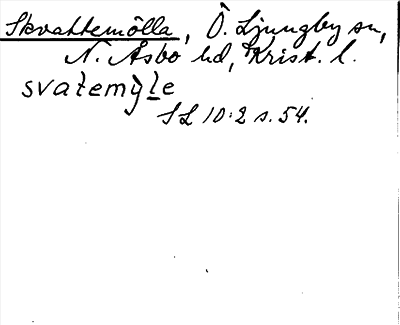 Skvattemölla, Ö. Ljungby sn,
N. Åsbo hd, Krist. l.
svatemỳle
SL 10:2 s. 54.